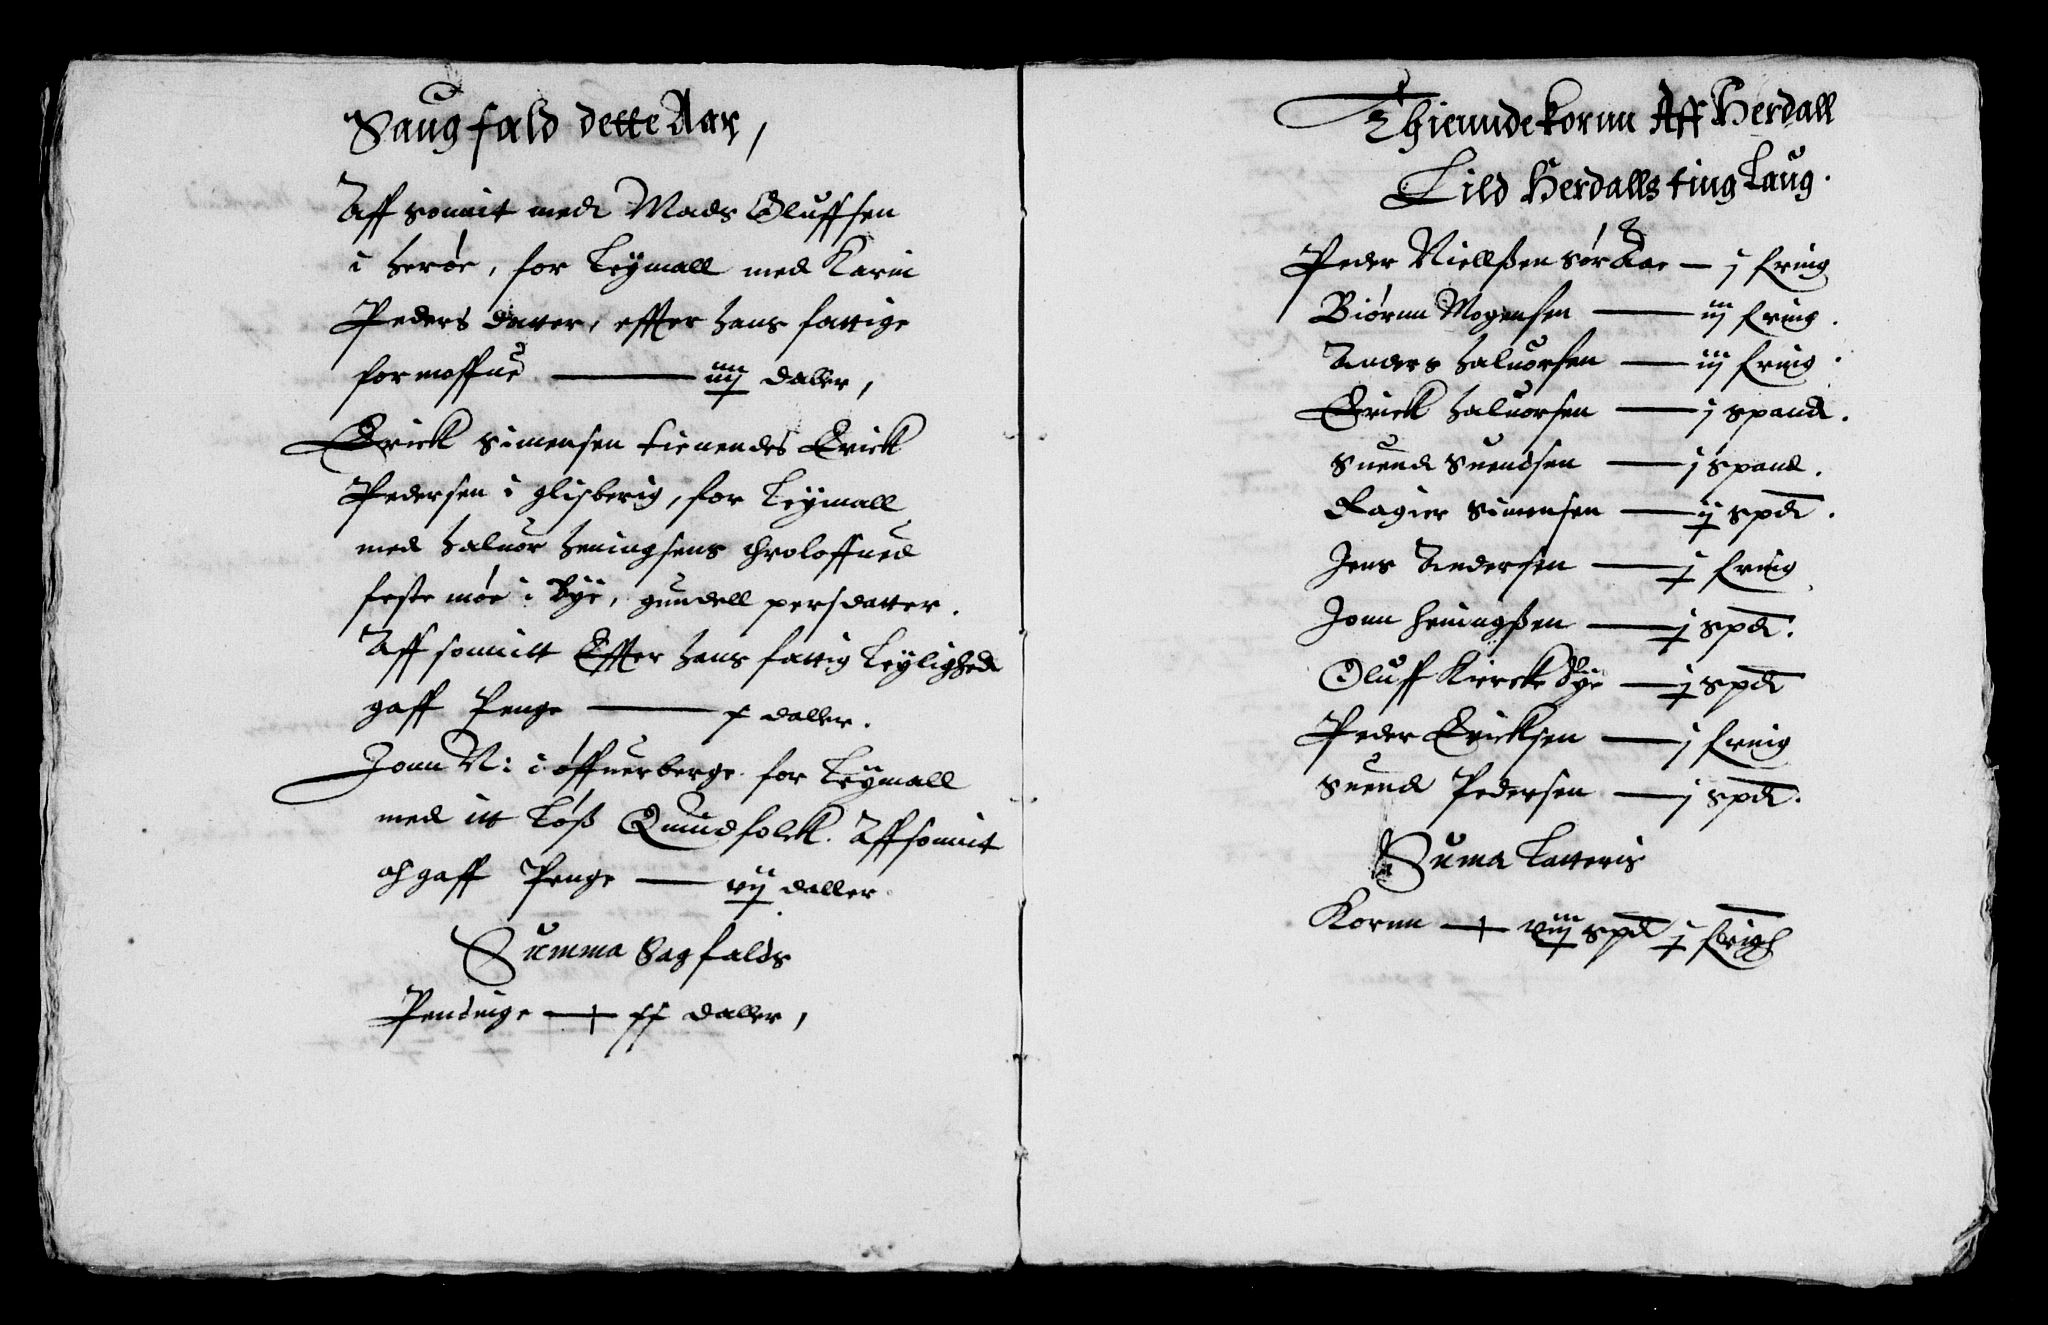 Saugfald dette Aar,
Aff sonnit med Mads Oluffsen
i herøe, for Leÿmall med Karin
Peders datter, effter hans fattige
formoffue — iiiij daller,
Erick Simensen tienendes Erick
Pedersen i glisberig, for Leÿmall
med haluor heningsens throloffued
feste møe i Bÿe, gundell persdatter.
Aff sonnitt Effter hans fattig Leÿlighed
gaff Penge — x daller.
Jonn N: i øffuerberge for Leÿmall
med itt Løß Quindfolck. Affsonnit
oh gaff Penge — vij daller
Summa Sagfalds
Pendinge — xx daller,
Thiennde kornn Aff Herdall
Lild Herdalls ting Laug.
Peder Nielßen Sør Aae — j fring
Biørnn Mogensen — iij fring.
Anders haluorsen — iij fring.
Erick haluorsen — j spand.
Suend Suendsen — j spand.
Eagier Simensen — ij spd.
Jens Andersen — j fring
Jonn heningßen — j spd.
Oluff Kircke Bÿe — j spd
Peder Ericksen — j fring
Suend Pedersen — j spd.
Suma Latteris
Kornn — viij spd j fringh